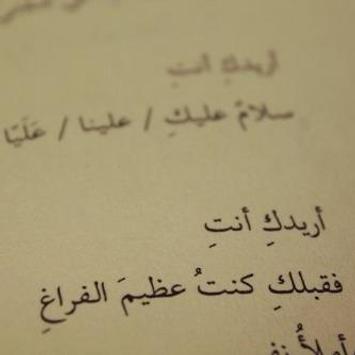 أريدكِ أنتِ
سلامٌ عليكِ / علينا / عَلَيَّا
أريدكِ أنتِ
فقبلكِ كنتُ عظيمَ الفراغِ